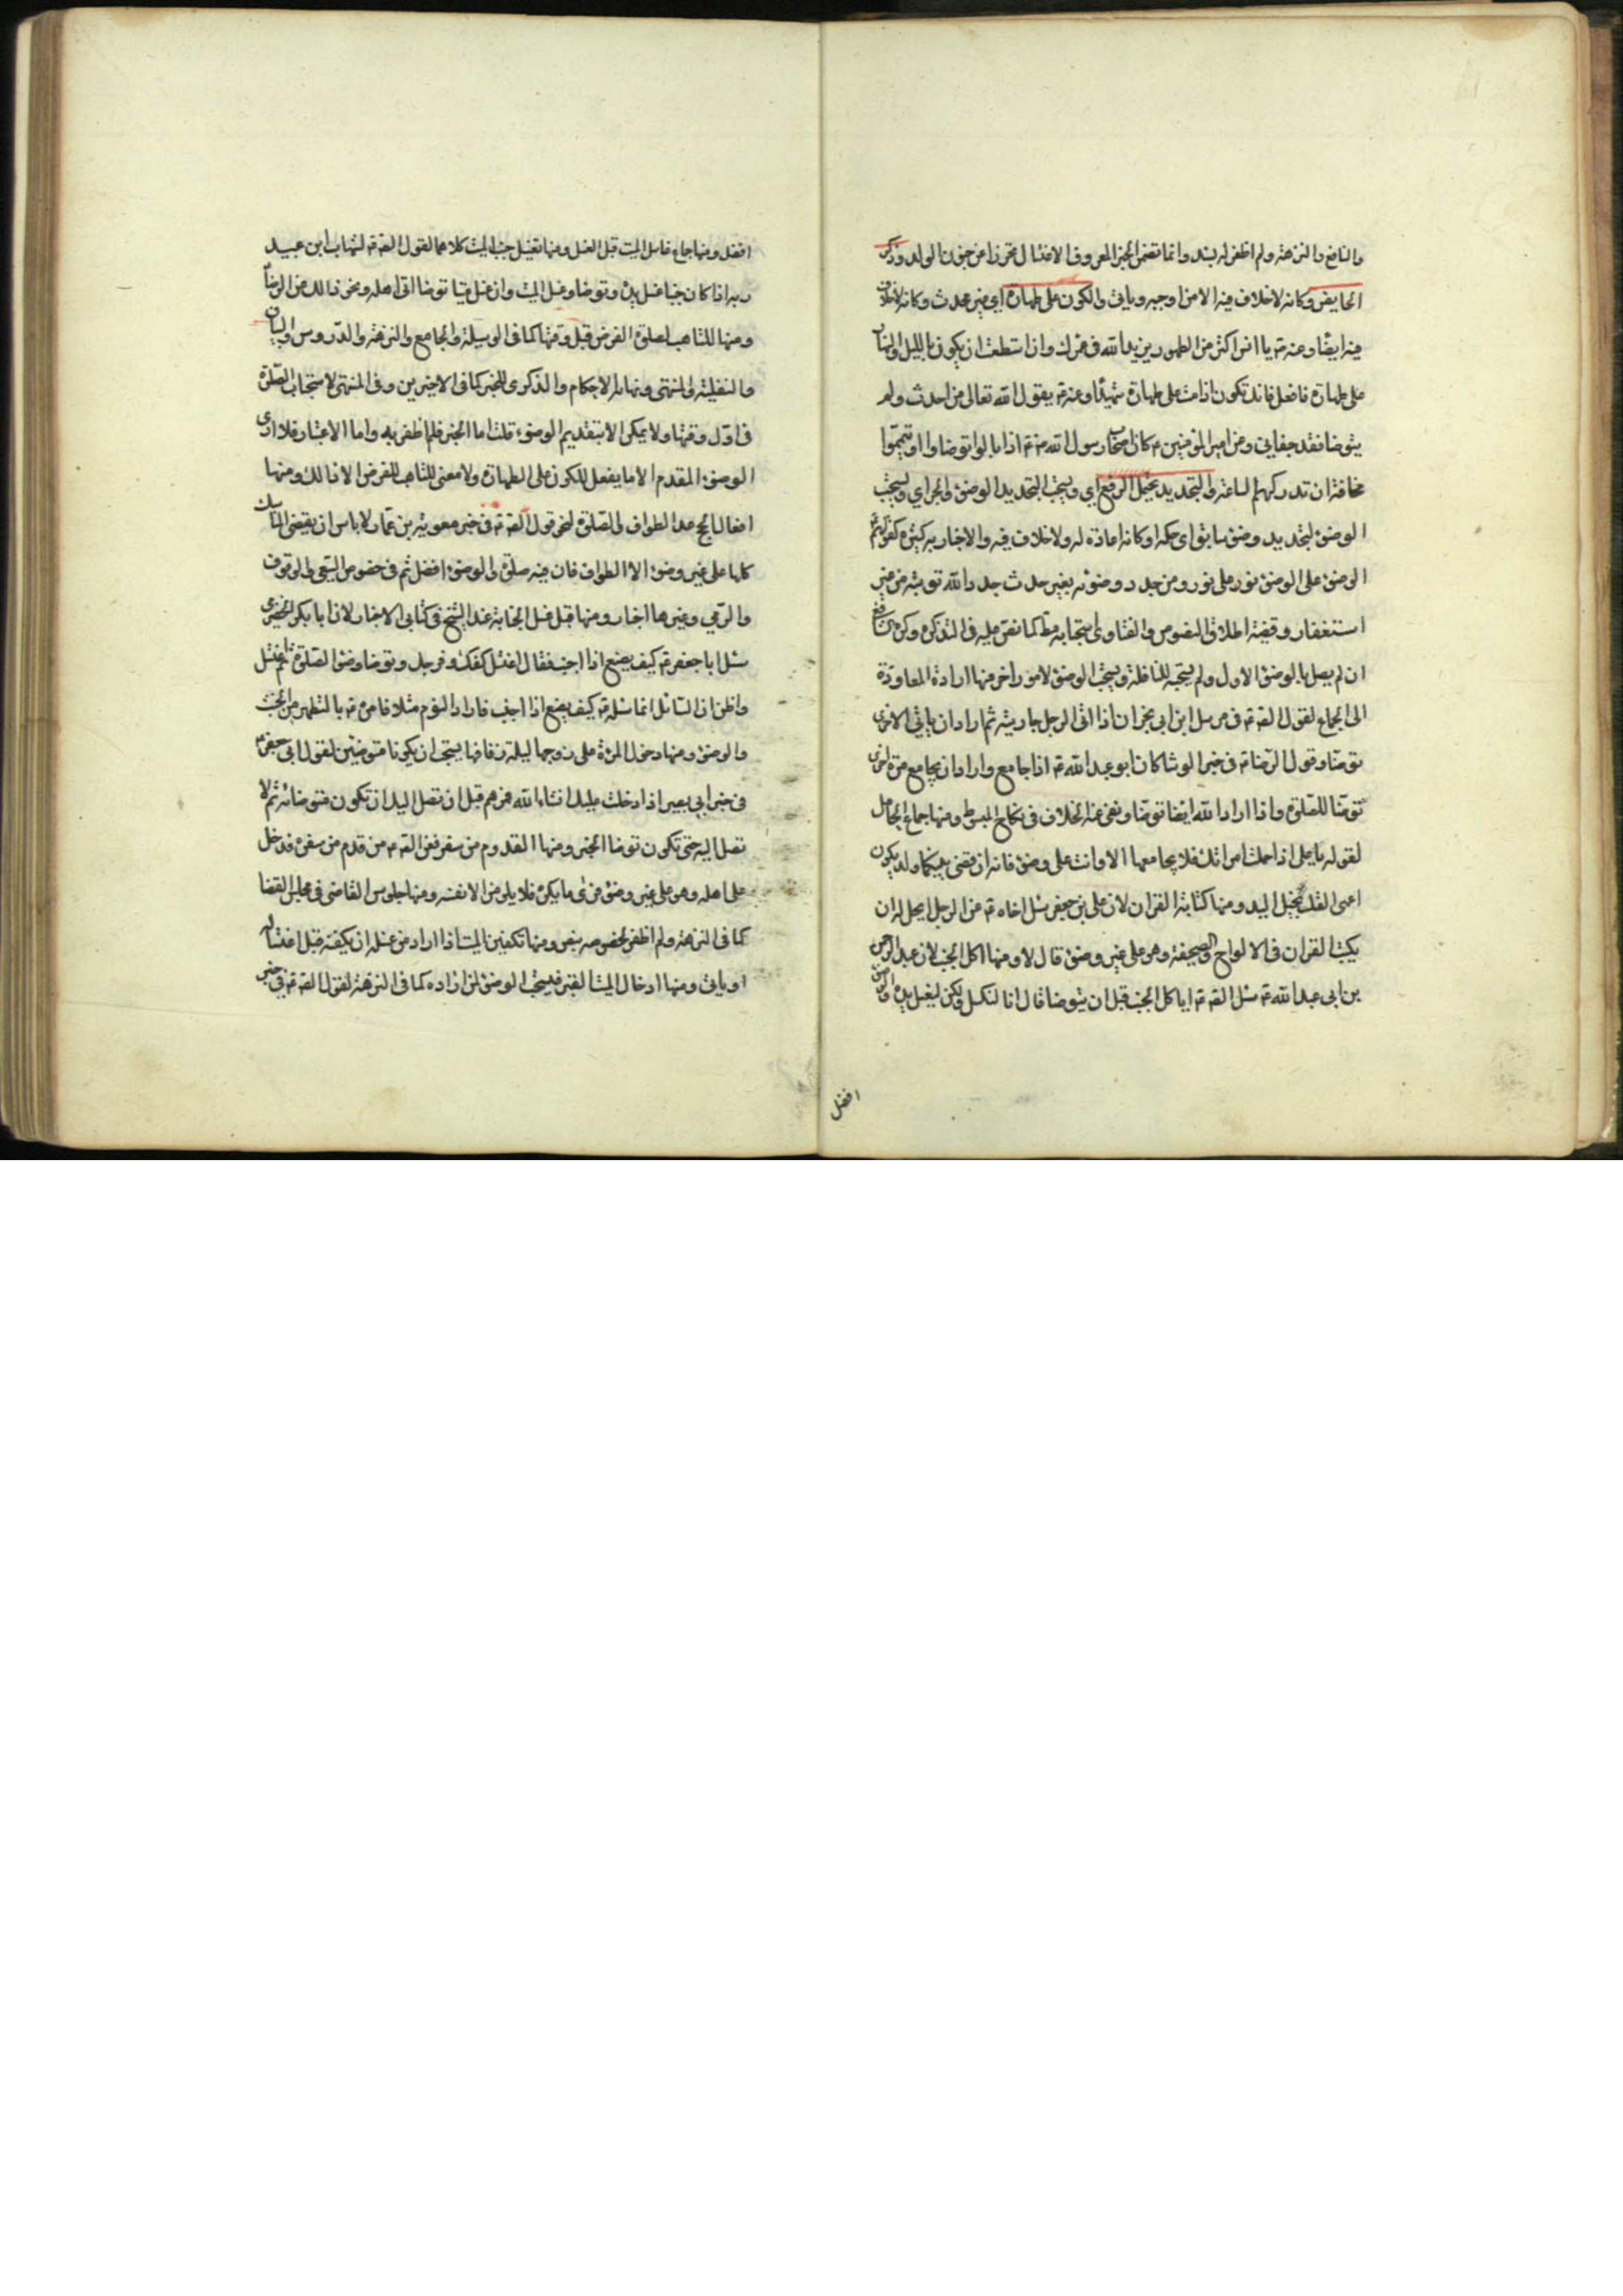 والنافع والنزهة ولم اظفر له بسند وانما تضمن الخبر المعروف الاغتسال تحرزا من جنون الولد وذكر
الحايض وكانه لا خلاف فيه الا من اوجبه وياتي والكون على طهارة اي من غير حدث وكانه لا خلاف
فيه ايضا وعنه ص يا انس اكثر من الطهور يزيد الله في عمرك وان استطعت ان يكون بالليل والنهار
على طهارة فافعل فانك تكون اذا مت على طهارة شهيدا وعنه ص يقول الله تعالى من احدث ولم
يتوضا فقد جفاني وعن امير المؤمنين ع كان اصحاب رسول الله ص اذا بالوا توضاوا او تيمموا
مخافة ان تدركهم الساعة والتجديد يحتمل الرفع اي ويستحب التجديد الوضوء والجر اي ويستحب
الوضوء لتجديد وضوء سابق اي حكمه او كانه اعادة له ولا خلاف فيه والاخبار به كثيرة كقولهم
الوضوء على الوضوء نور على نور ومن جدد وضوئه بغير حدث جدد الله توبته من غير
استغفار وقضية اطلاق النصوص والفتاوى استحبابه مط كما نص عليه في التذكرة وكره الشافعي
ان لم يصل بالوضوء الاول ولم يستحبه للنافلة ويستحب الوضوء لامور اخر منها ارادة المعاودة
الى الجماع لقول الصادق ع في مرسل ابن ابي نجران اذا اتى الرجل جاريته ثم اراد ان ياتي الاخرى
توضا وقول الرضا ع في خبر الوشا كان ابو عبد الله ع اذا جامع واراد ان يجامع مرة اخرى
توضا للصلوة واذا اراد الله ايضا توضا ونفى عنه الخلاف في نكاح المبسوط ومنها جماع الحامل
لقوله يا علي اذا حملت امراتك فلا تجامعها الا وانت على وضوء فانه ان قضى بينكما ولد يكون
اعمى القلب بخيل اليد ومنها كتابة القران لان علي بن جعفر سئل اخاه ع عن الرجل ايحل له ان
يكتب القران في الالواح والصحيفة وهو على غير وضوء قال لا ومنها اكل الجنب لان عبد الرحمن
بن ابي عبد الله ع سئل الصادق ع اياكل الجنب قبل ان يتوضا قال انا لنكسل ولكن ليغسل يده والوضوء
افضل
افضل ومنها جماع غاسل الميت قبل الغسل ومنها تغسيل جنب الميت كلاهما لقول الصادق ع لشهاب ابن عبد
ربه اذا كان جنبا غسل يده وتوضا وغسل الميت وان غسل ميتا توضا اتى اهله ونحو ذلك عن الرضا
ومنها للتاهب لصلوة الفرض قبل وقتها كما في الوسيلة والجامع والنزهة والدروس والبيان
والنفلية والمنتهى ونهاية الاحكام والذكرى للخبر كما في الاخيرين وفي المنتهى لاستحباب الصلوة
في اول وقتها ولا يمكن الا بتقديم الوضوء قلت اما الخبر فلم اظفر به واما الاعتبار فلا ارى
الوضوء المقدم الا ما يفعل للكون على الطهارة ولا معنى للتاهب للفرض الا ذلك ومنها
افعال الحج عدا الطواف والصلوة لنحو قول الصادق ع في خبر معوية بن عمار لا باس ان يقضي المناسك
كلها على غير وضوء الا الطواف فان فيه صلوة والوضوء افضل ثم في خصوص السعي والوقوف
والرمي وغيرها اخبار ومنها قبل غسل الجنابة عند الشيخ في كتابي الاخبار لان ابا بكر الحضرمي
سئل ابا جعفر ع كيف يصنع اذا اجنب فقال اغسل كفك وفرجك وتوضا وضوء الصلوة ثم اغتسل
واظن ان السائل انما سئله ع كيف يصنع اذا اجنب فاراد النوم مثلا فامره ع بالتطهر من الخبث
والوضوء ومنها دخول المرئة على زوجها ليلة زفافها يستحب ان يكونا متوضئين لقول ابي جعفر ع
في خبر ابي بصير اذا دخلت عليك انشاء الله فمرهم قبل ان تصل اليك ان تكون متوضئة ثم لا
تصل اليها حتى تكون توضا الخبر ومنها القدوم من سفر فعن الصادق ع من قدم من سفره فدخل
على اهله وهو على غير وضوء فراى ما يكره فلا يلومن الا نفسه ومنها جلوس القاضي في مجلس القضا
كما في النزهة ولم اظفر لخصوصه بنص ومنها تكفين الميت اذا اراد من غسله ان يكفنه قبل اغتساله
او ياتي ومنها ادخال الميت القبر فيستحب الوضوء لمن اراده كما في النزهة لقول الصادق ع في خبر